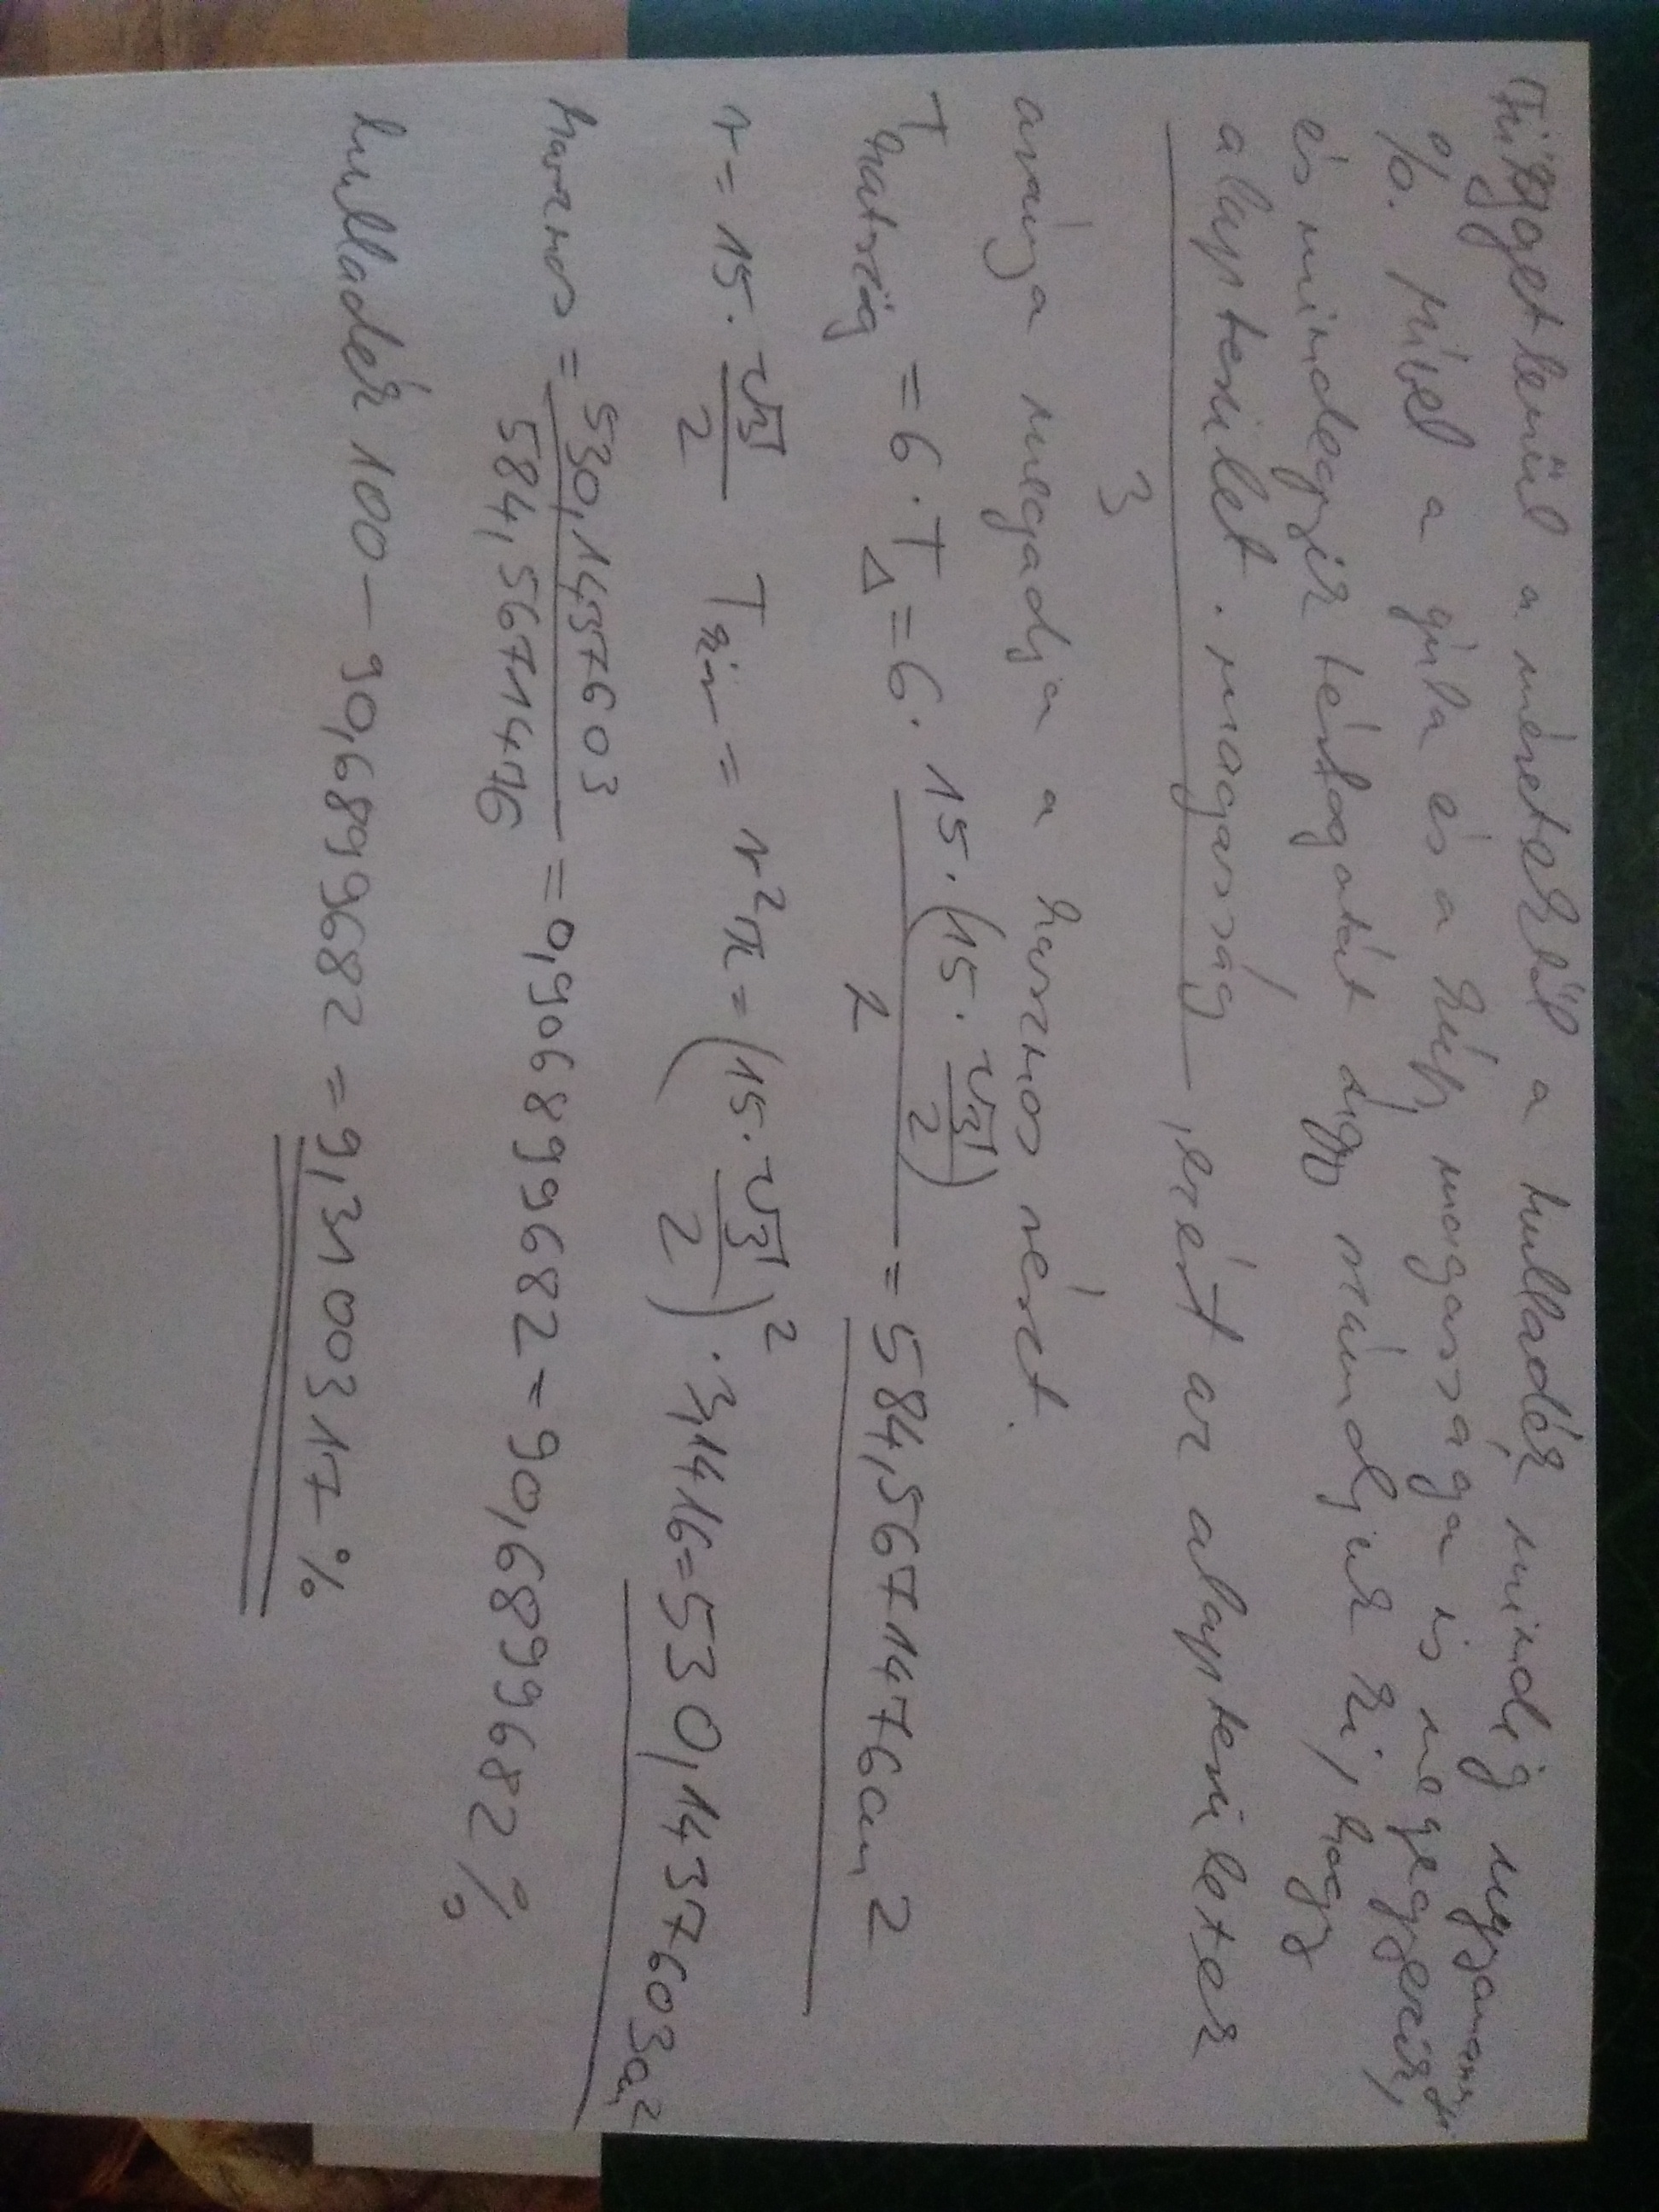 Függetlenül a méretektől a hulladék mindig ugyanannyi
%. Mivel a gúla és a kúp magassága is megegyezik,
és mindegyik térfogatát úgy számoljuk ki, hogy
alapterület . magasság
3
, ezért az alapterületek
aránya megadja a hasznos részt.
T hatszög = 6 . T Δ = 6 . 15 . (15 . √3/2) / 2 = 584,5671476 cm²
r = 15 . √3/2 T kör = r²π = (15 . √3/2)² . 3,1416 = 530,1437603 cm²
hasznos = 530,1437603 / 584,5671476 = 0,9068999682 = 90,68999682 %
hulladék 100 – 90,68999682 = 9,31000317 %